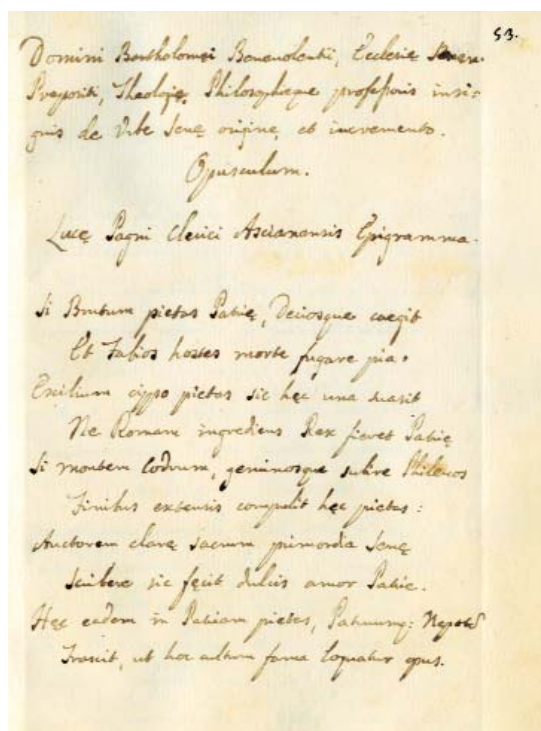 53.
Domini Bartholomęi Beneuolentii, Ecclesię Senen.
Prepositi, Theologię, Philosophięque professoris insi=
gnis de Vrbe Senę origine, et incremento.
Opusculum.
Lucę Pagni Clerici Ascianensis Epigramma.
Si Brutum pietas Patrię, Deciosque coegit
Et Fabios hostes morte fugare pia.
Exilium cippo pietas sic hęc una suasit
Ne Romam ingrediens Rex fieret Patrię
Si montem Codrum, geminosque subire Philenos
Finibus extensis compulit hęc pietas:
Auctorem clarę sacrum primordia Senę
Scribere sic fęcit dulcis amor Patrie.
Hęc eadem in Patriam pietas, Patruumq:
Traxit, ut hoc fama loquatur opus.